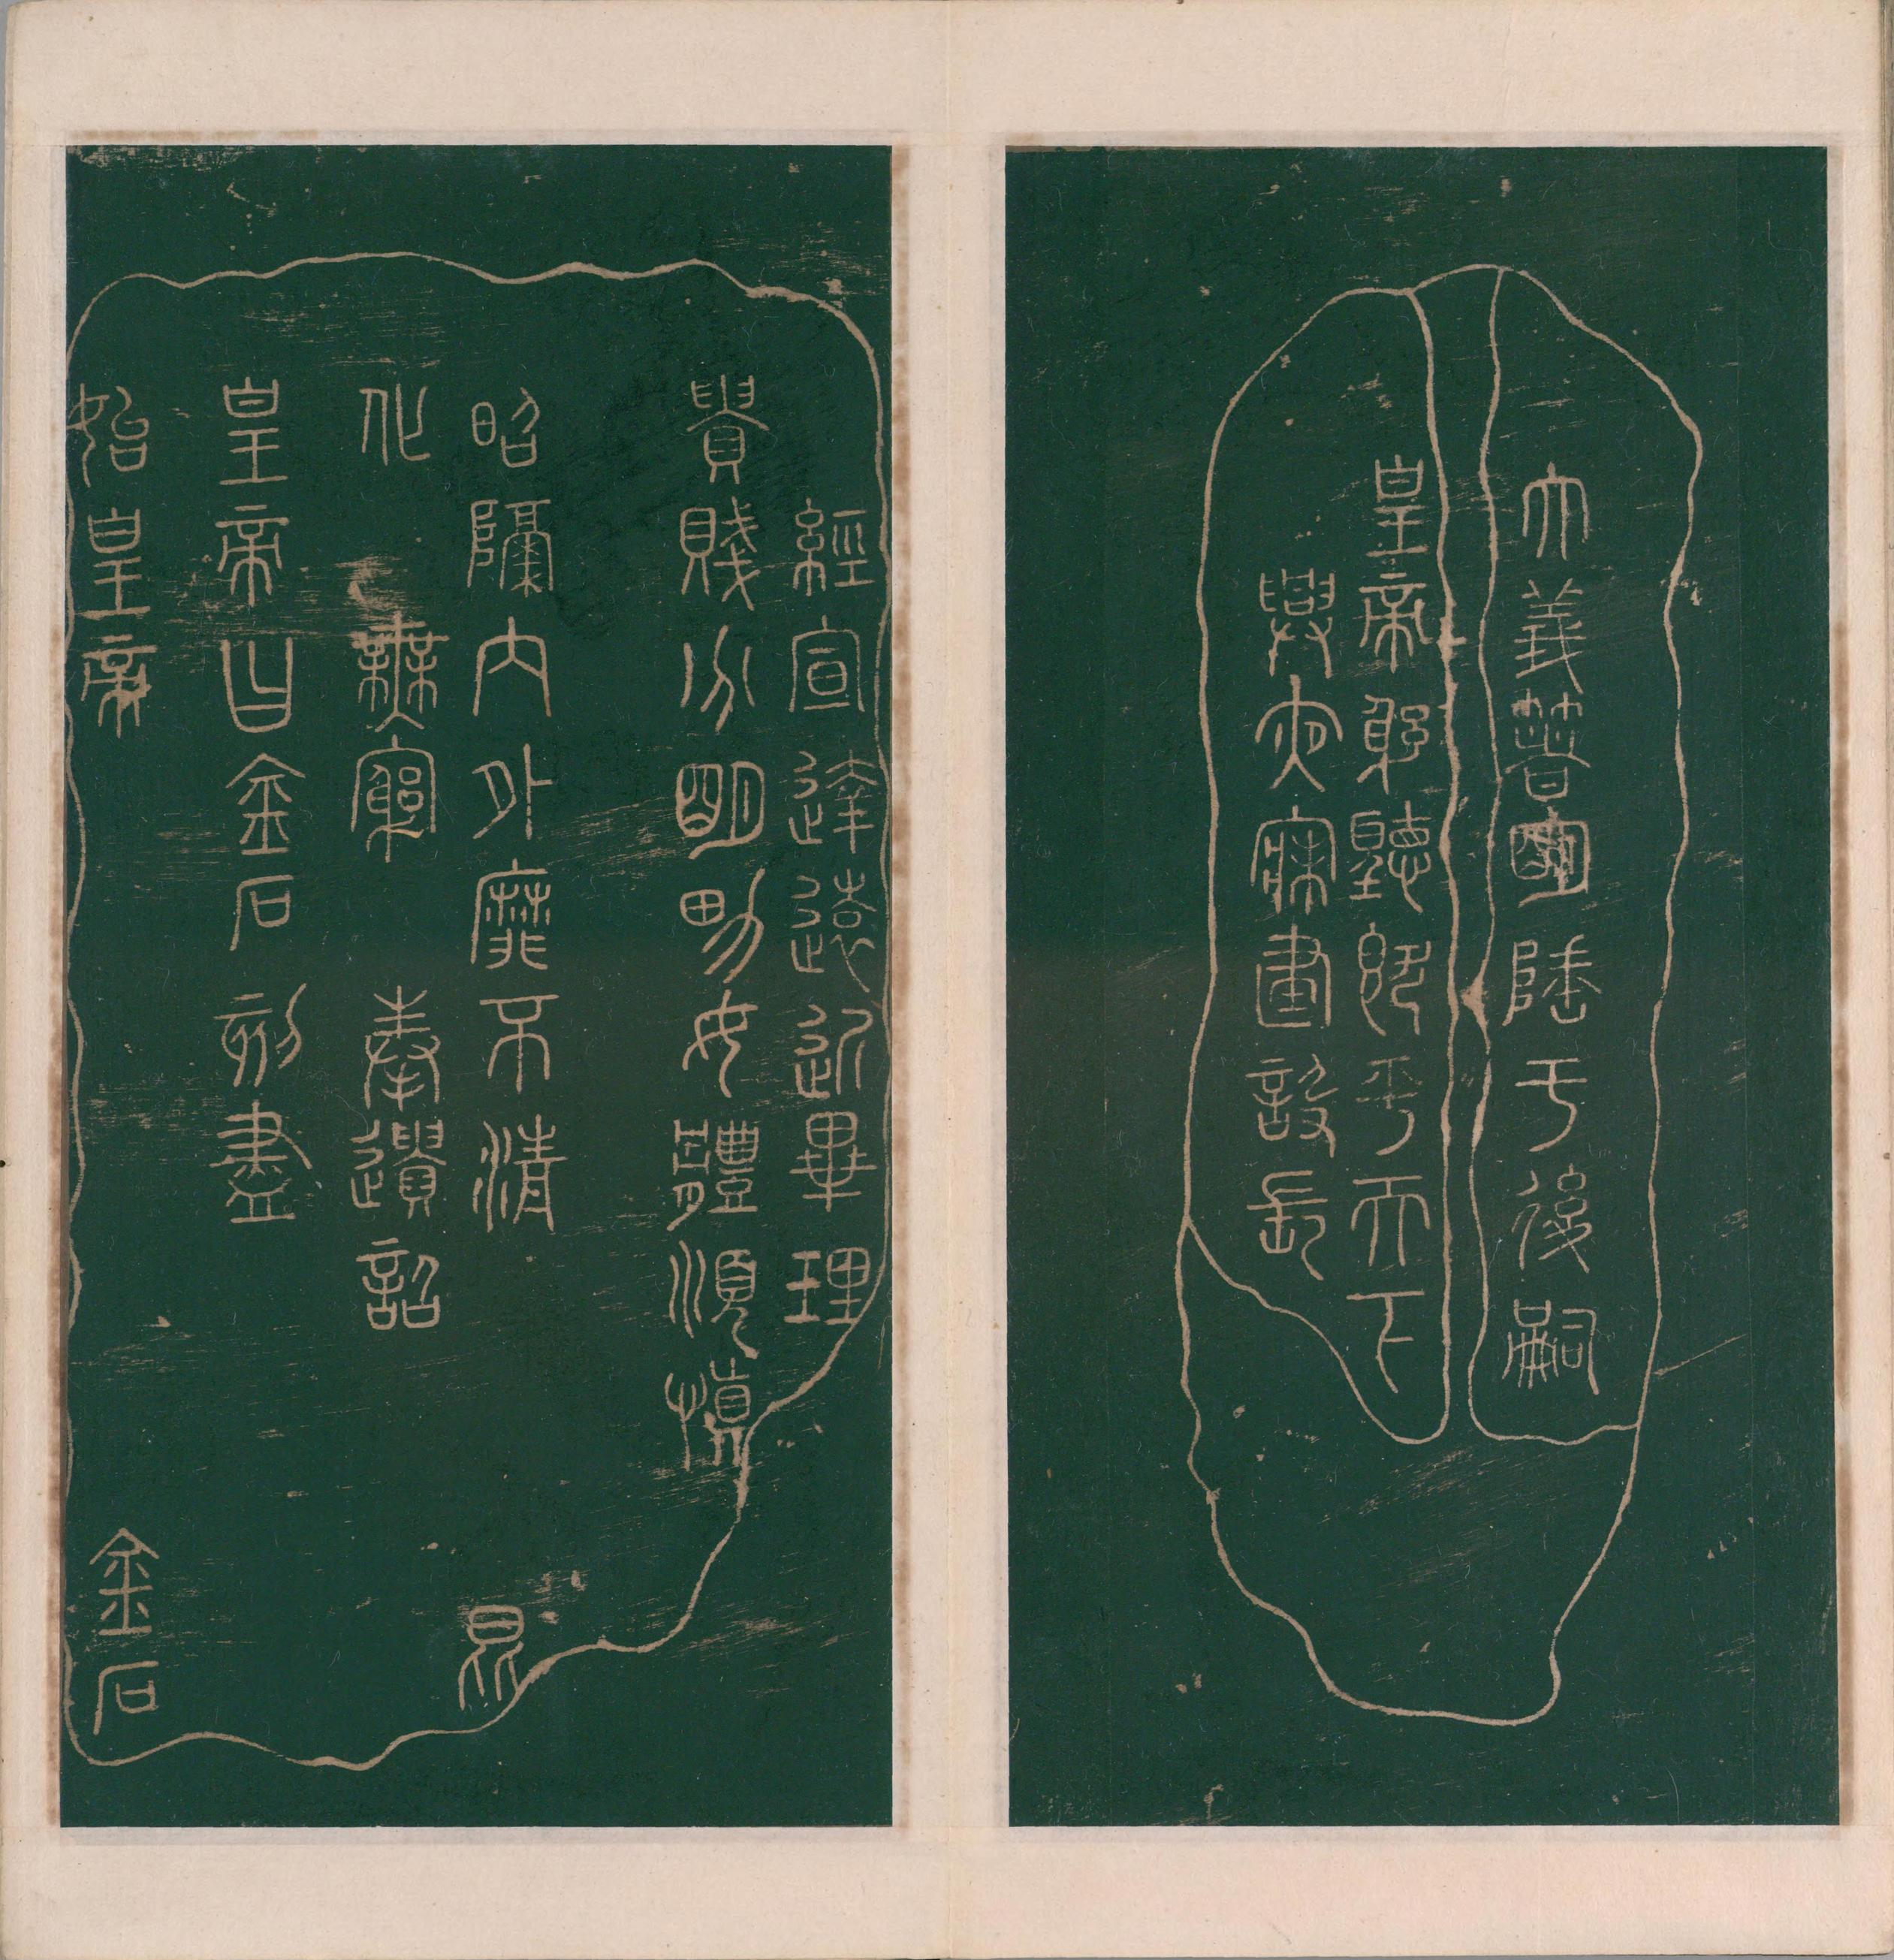 大義箸明陲于後嗣
皇帝躬聽既平天下
興夜寐建設長
經宣達遠近畢理
貴賤分明男女體順慎
昭隔內外靡不清昆
化無窮奉遺詔
皇帝曰金石刻盡
始皇帝金石